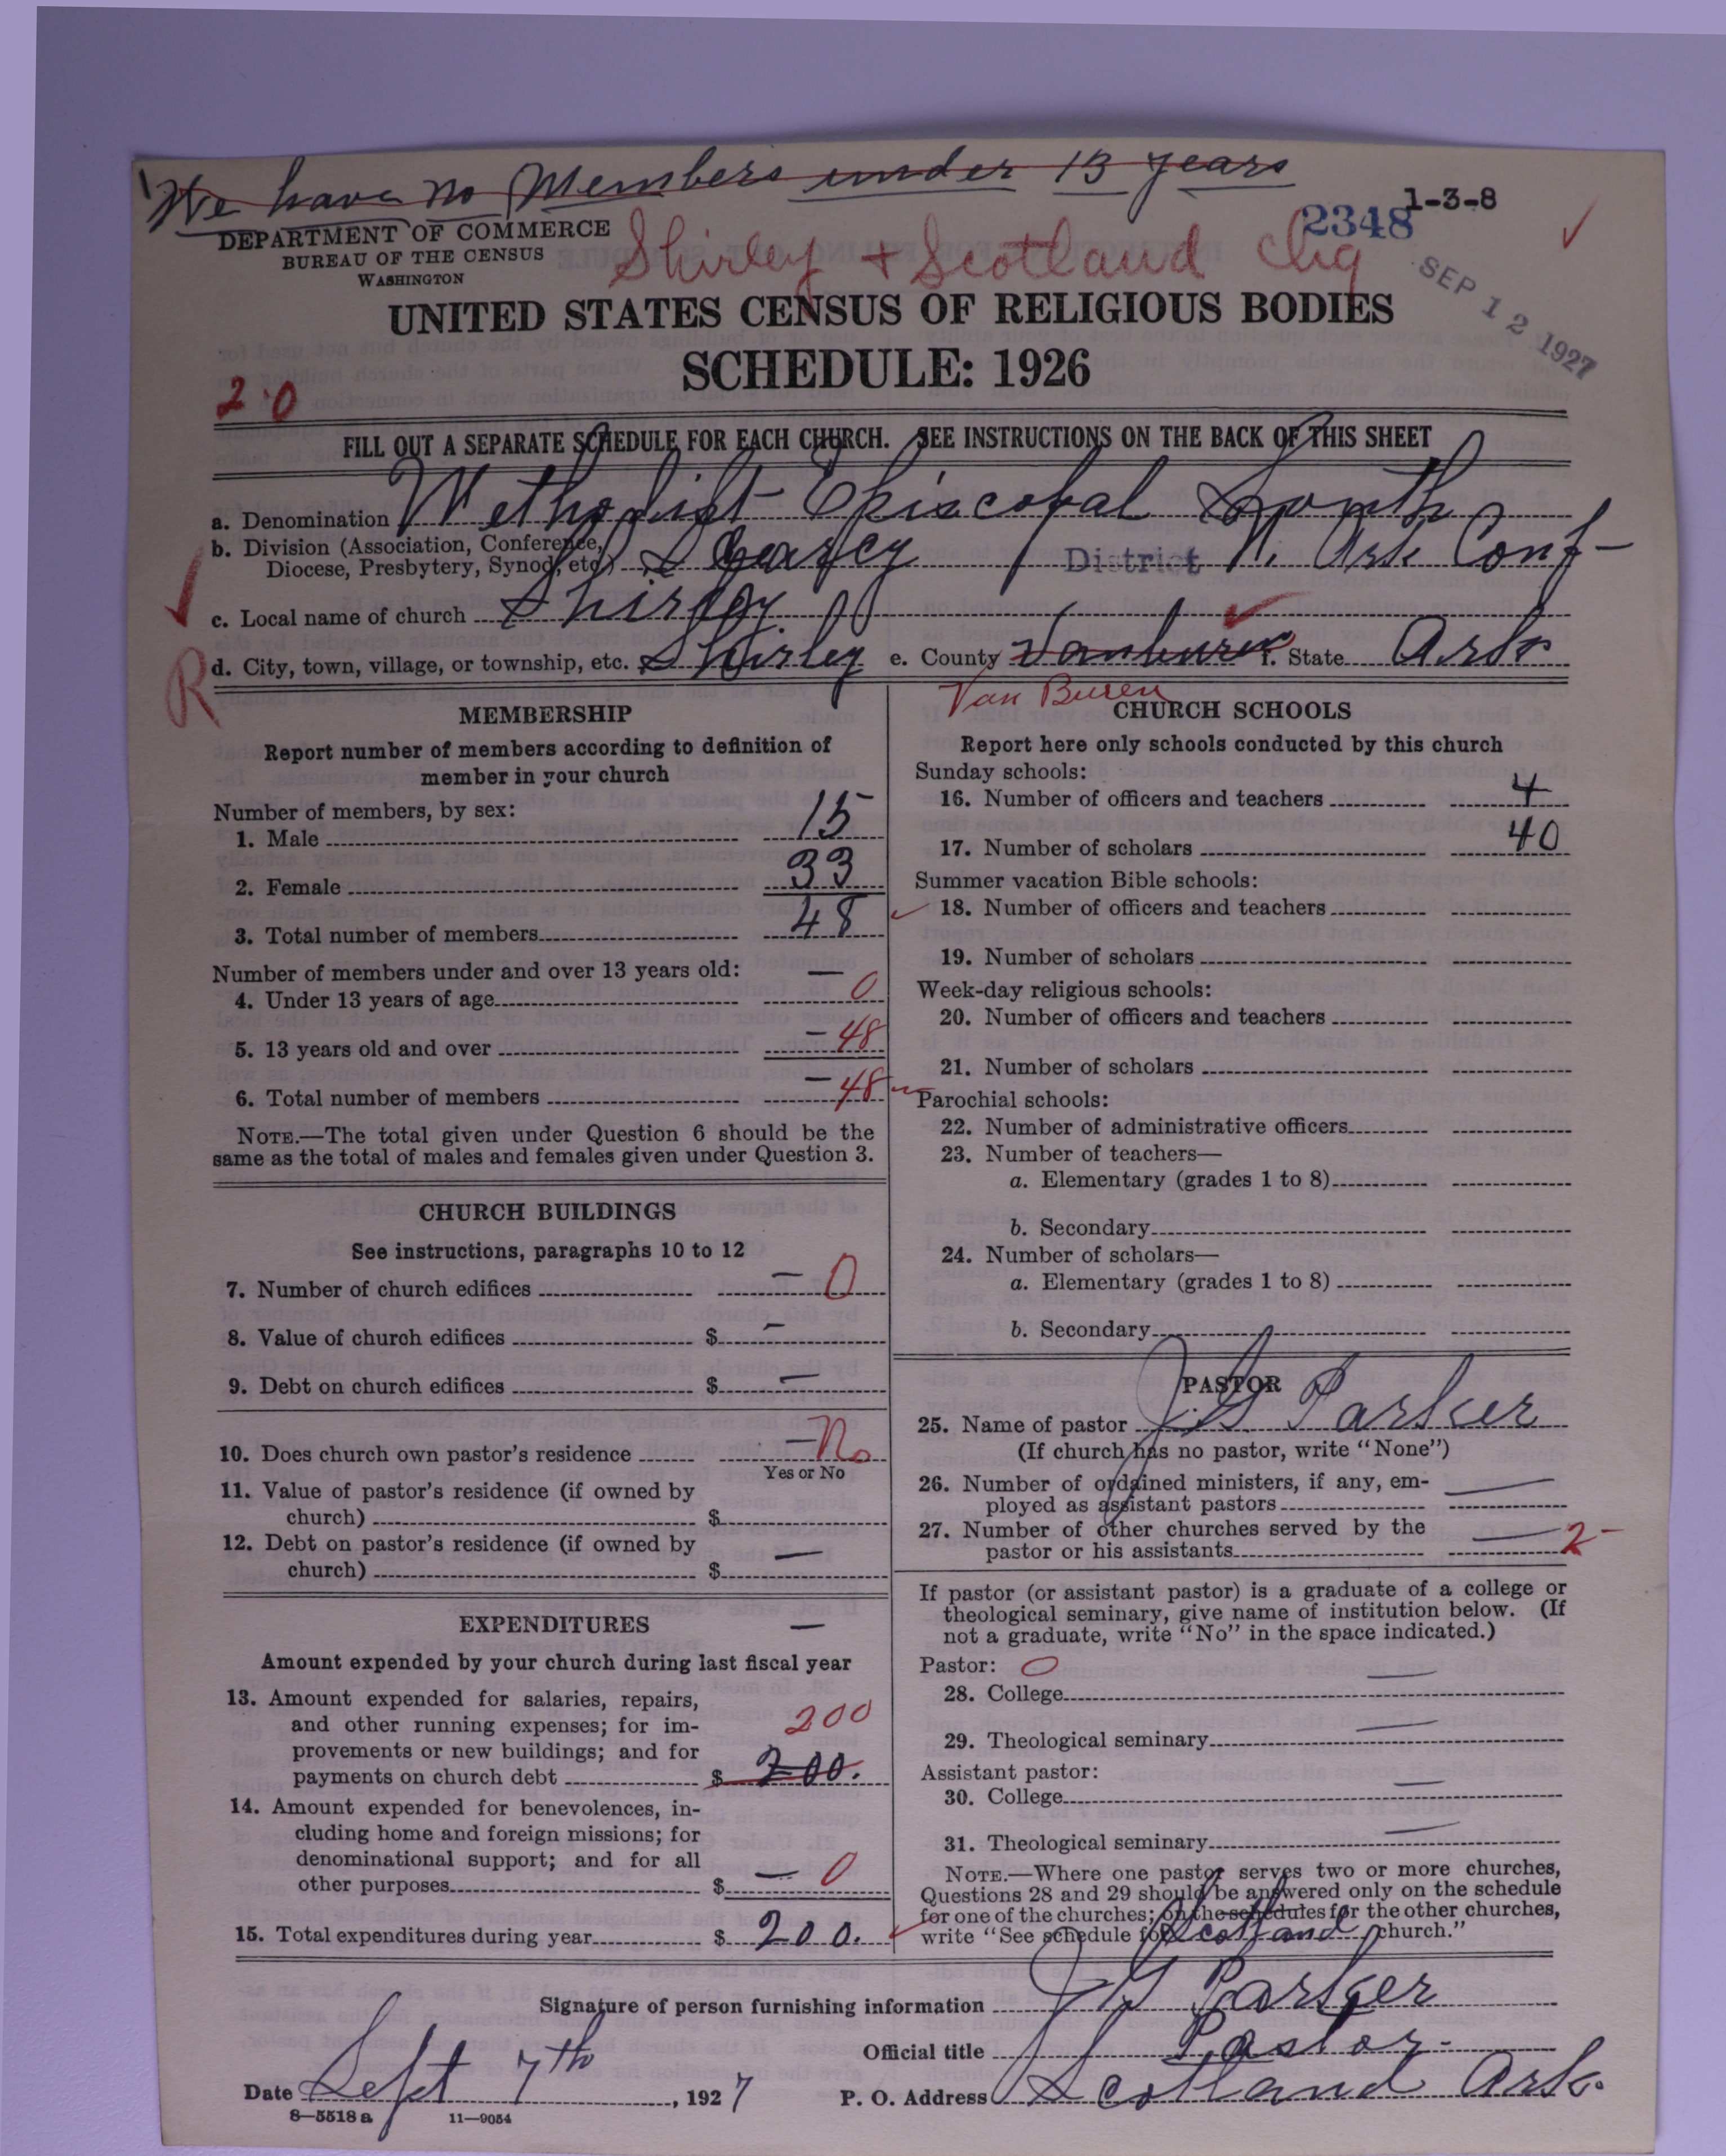 We have no Members under 13 years
1-3-8
2348
DEPARTMENT OF COMMERCE
BUREAU OF THE CENSUS
WASHINGTON
Shirley + Scotland Chg
SEP 12 1927
UNITED STATES CENSUS OF RELIGIOUS BODIES
SCHEDULE: 1926
2.0
FILL OUT A SEPARATE SCHEDULE FOR EACH CHURCH. SEE INSTRUCTIONS ON THE BACK OF THIS SHEET
a. Denomination Methodist Episcopal South
b. Division (Association, Conference,
Diocese, Presbytery, Synod, etc.) Searcy District N. Ark Conf-
c. Local name of church Shirley
R
d. City, town, village, or township, etc. Shirley e. County Vanburen f. State Ark
Van Buren
MEMBERSHIP
Report number of members according to definition of
member in your church
Number of members, by sex:
1. Male 15
2. Female 33
3. Total number of members 48
Number of members under and over 13 years old:
4. Under 13 years of age — 0
5. 13 years old and over — 48
6. Total number of members — 48
NOTE.—The total given under Question 6 should be the
same as the total of males and females given under Question 3.
CHURCH BUILDINGS
See instructions, paragraphs 10 to 12
7. Number of church edifices — 0
8. Value of church edifices $ —
9. Debt on church edifices $ —
10. Does church own pastor's residence — No
Yes or No
11. Value of pastor's residence (if owned by
church) $
12. Debt on pastor's residence (if owned by —
church) $
EXPENDITURES —
Amount expended by your church during last fiscal year
13. Amount expended for salaries, repairs,
and other running expenses; for im- 200
provements or new buildings; and for
payments on church debt $ 200.
14. Amount expended for benevolences, in-
cluding home and foreign missions; for
denominational support; and for all
other purposes $ — 0
15. Total expenditures during year $ 200.
CHURCH SCHOOLS
Report here only schools conducted by this church
Sunday schools:
16. Number of officers and teachers 4
17. Number of scholars 40
Summer vacation Bible schools:
18. Number of officers and teachers
19. Number of scholars
Week-day religious schools:
20. Number of officers and teachers
21. Number of scholars
Parochial schools:
22. Number of administrative officers
23. Number of teachers—
a. Elementary (grades 1 to 8)
b. Secondary
24. Number of scholars—
a. Elementary (grades 1 to 8)
b. Secondary
PASTOR
25. Name of pastor J G Parker
(If church has no pastor, write "None")
26. Number of ordained ministers, if any, em-
ployed as assistant pastors —
27. Number of other churches served by the
pastor or his assistants — 2-
If pastor (or assistant pastor) is a graduate of a college or
theological seminary, give name of institution below. (If
not a graduate, write "No" in the space indicated.)
Pastor: 0
28. College —
29. Theological seminary —
Assistant pastor:
30. College —
31. Theological seminary —
NOTE.—Where one pastor serves two or more churches,
Questions 28 and 29 should be answered only on the schedule
for one of the churches; on the schedules for the other churches,
write "See schedule for Scotland church."
Signature of person furnishing information J G Parker
Official title Pastor-
Date Sept 7th, 1927 P. O. Address Scotland Ark.
8—5518 a 11—9054